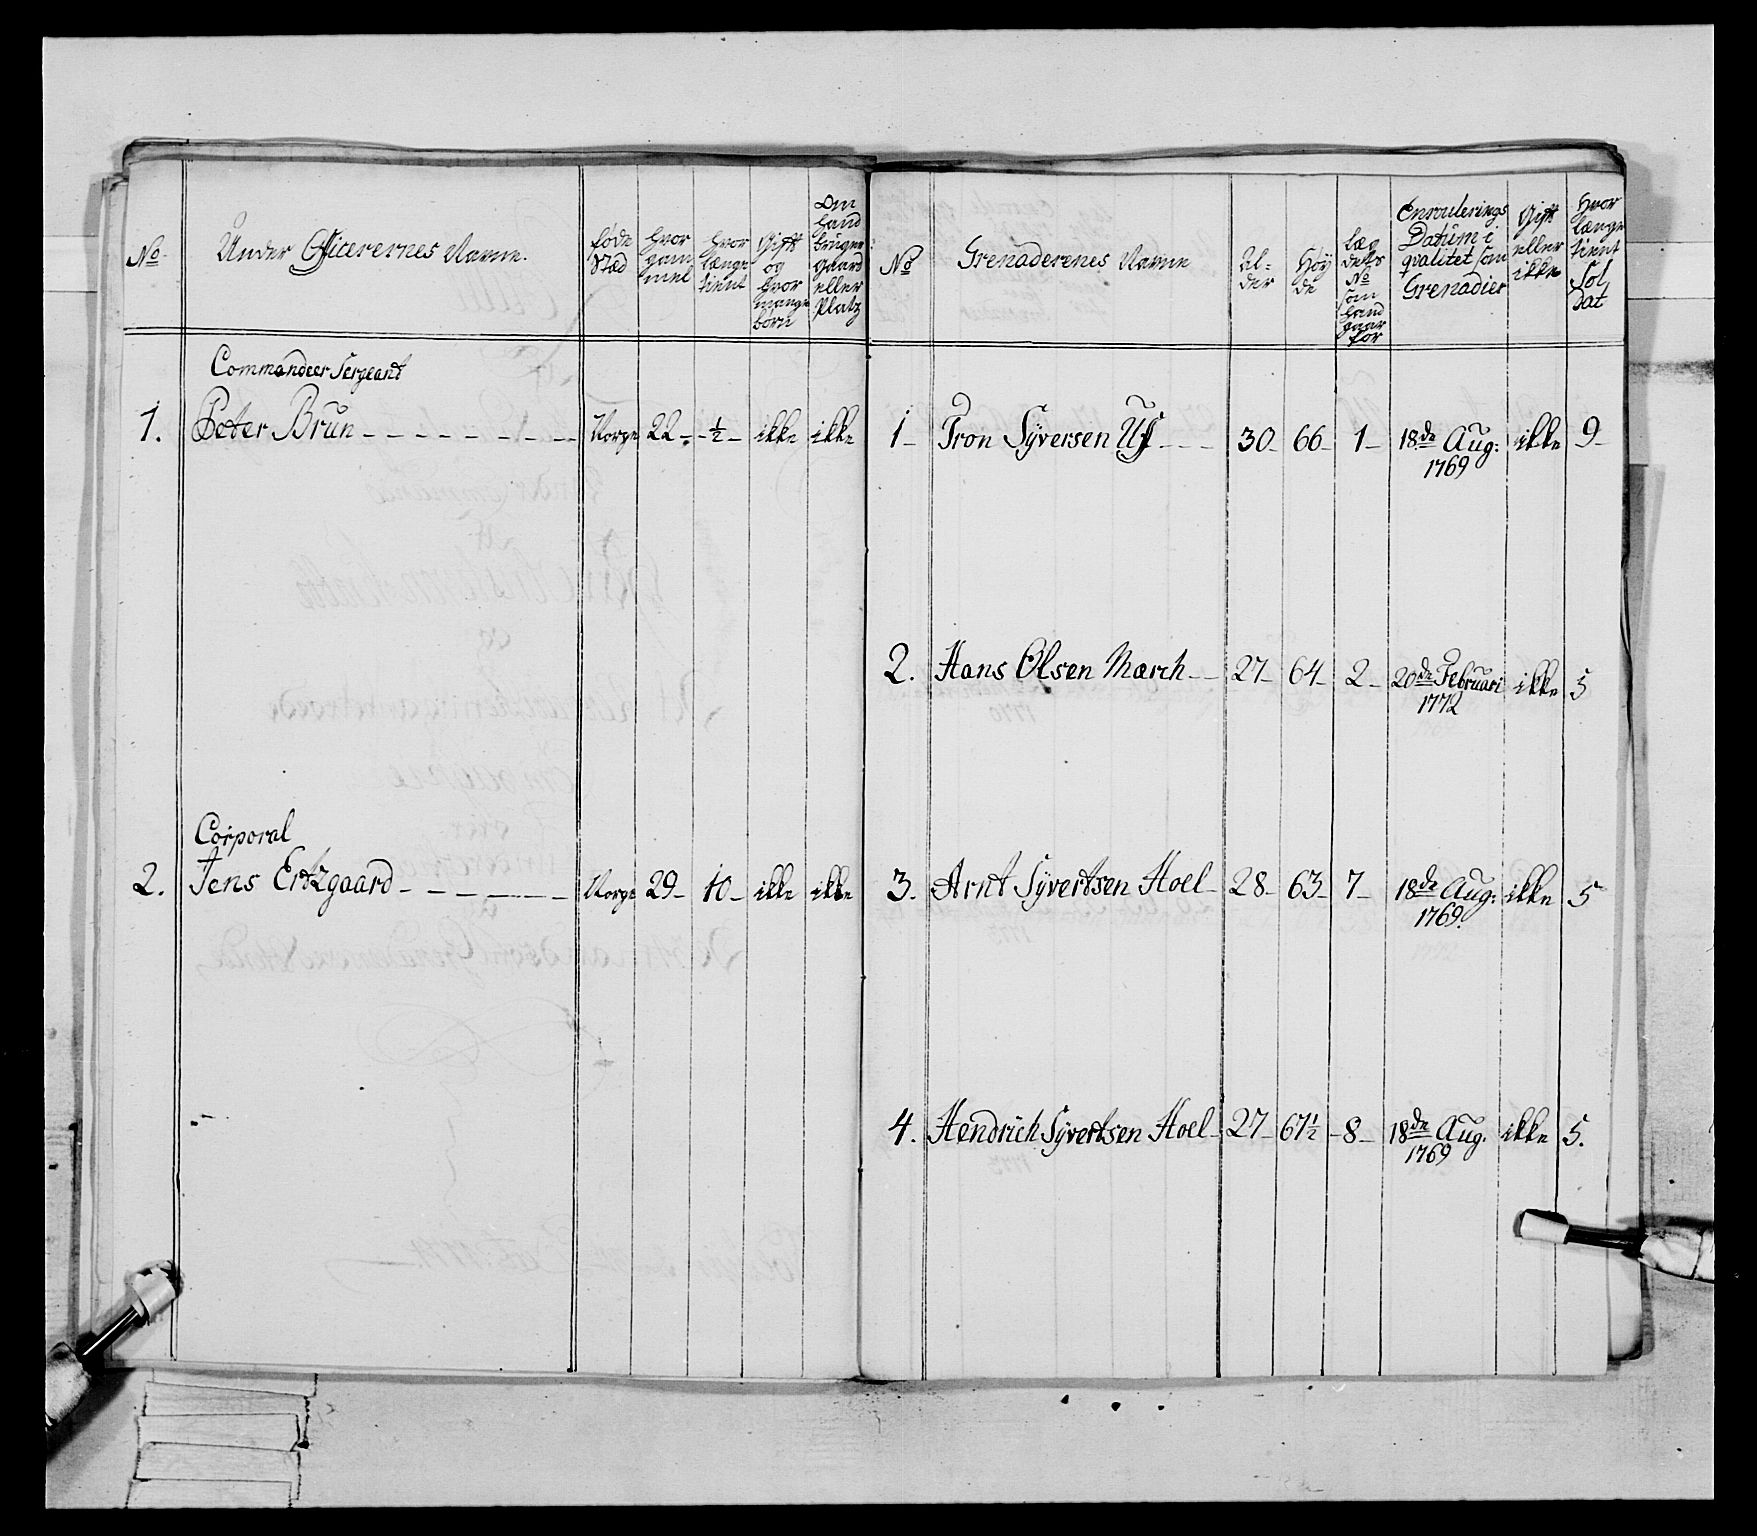 No
Under Officerernes Navne.
føde Stæd
hvor gam mel
hvor længe tient
Gift og hvor mange børn
Om hand bruger gaard eller Platz
Commandeer Sergeant
1. Peter Brun Norge 22 ½ ikke ikke
Corporal
2. Jens Ertzgaard Norge 29 10 ikke ikke
No
Grenaderenes Navne
Al= der
Høy de
læg dets No som hand gaar for
Enroulerings Datum i qvalitet som Grenadier
Gift eller ikke
Hvor længe tient Sol dat
1 Tron Syversen 30 66 1 18de Aug: ikke 9
1769
2. Hans Olsen March 27 64 2 20de Februari ikke 5
1772
3. Arnt Syvertsen Hoel 28 63 7 18de Aug: ikke 5
1769.
4. Hendrich Syvertsen Hoel 27 67½ 8 18de Aug. ikke 5.
1769